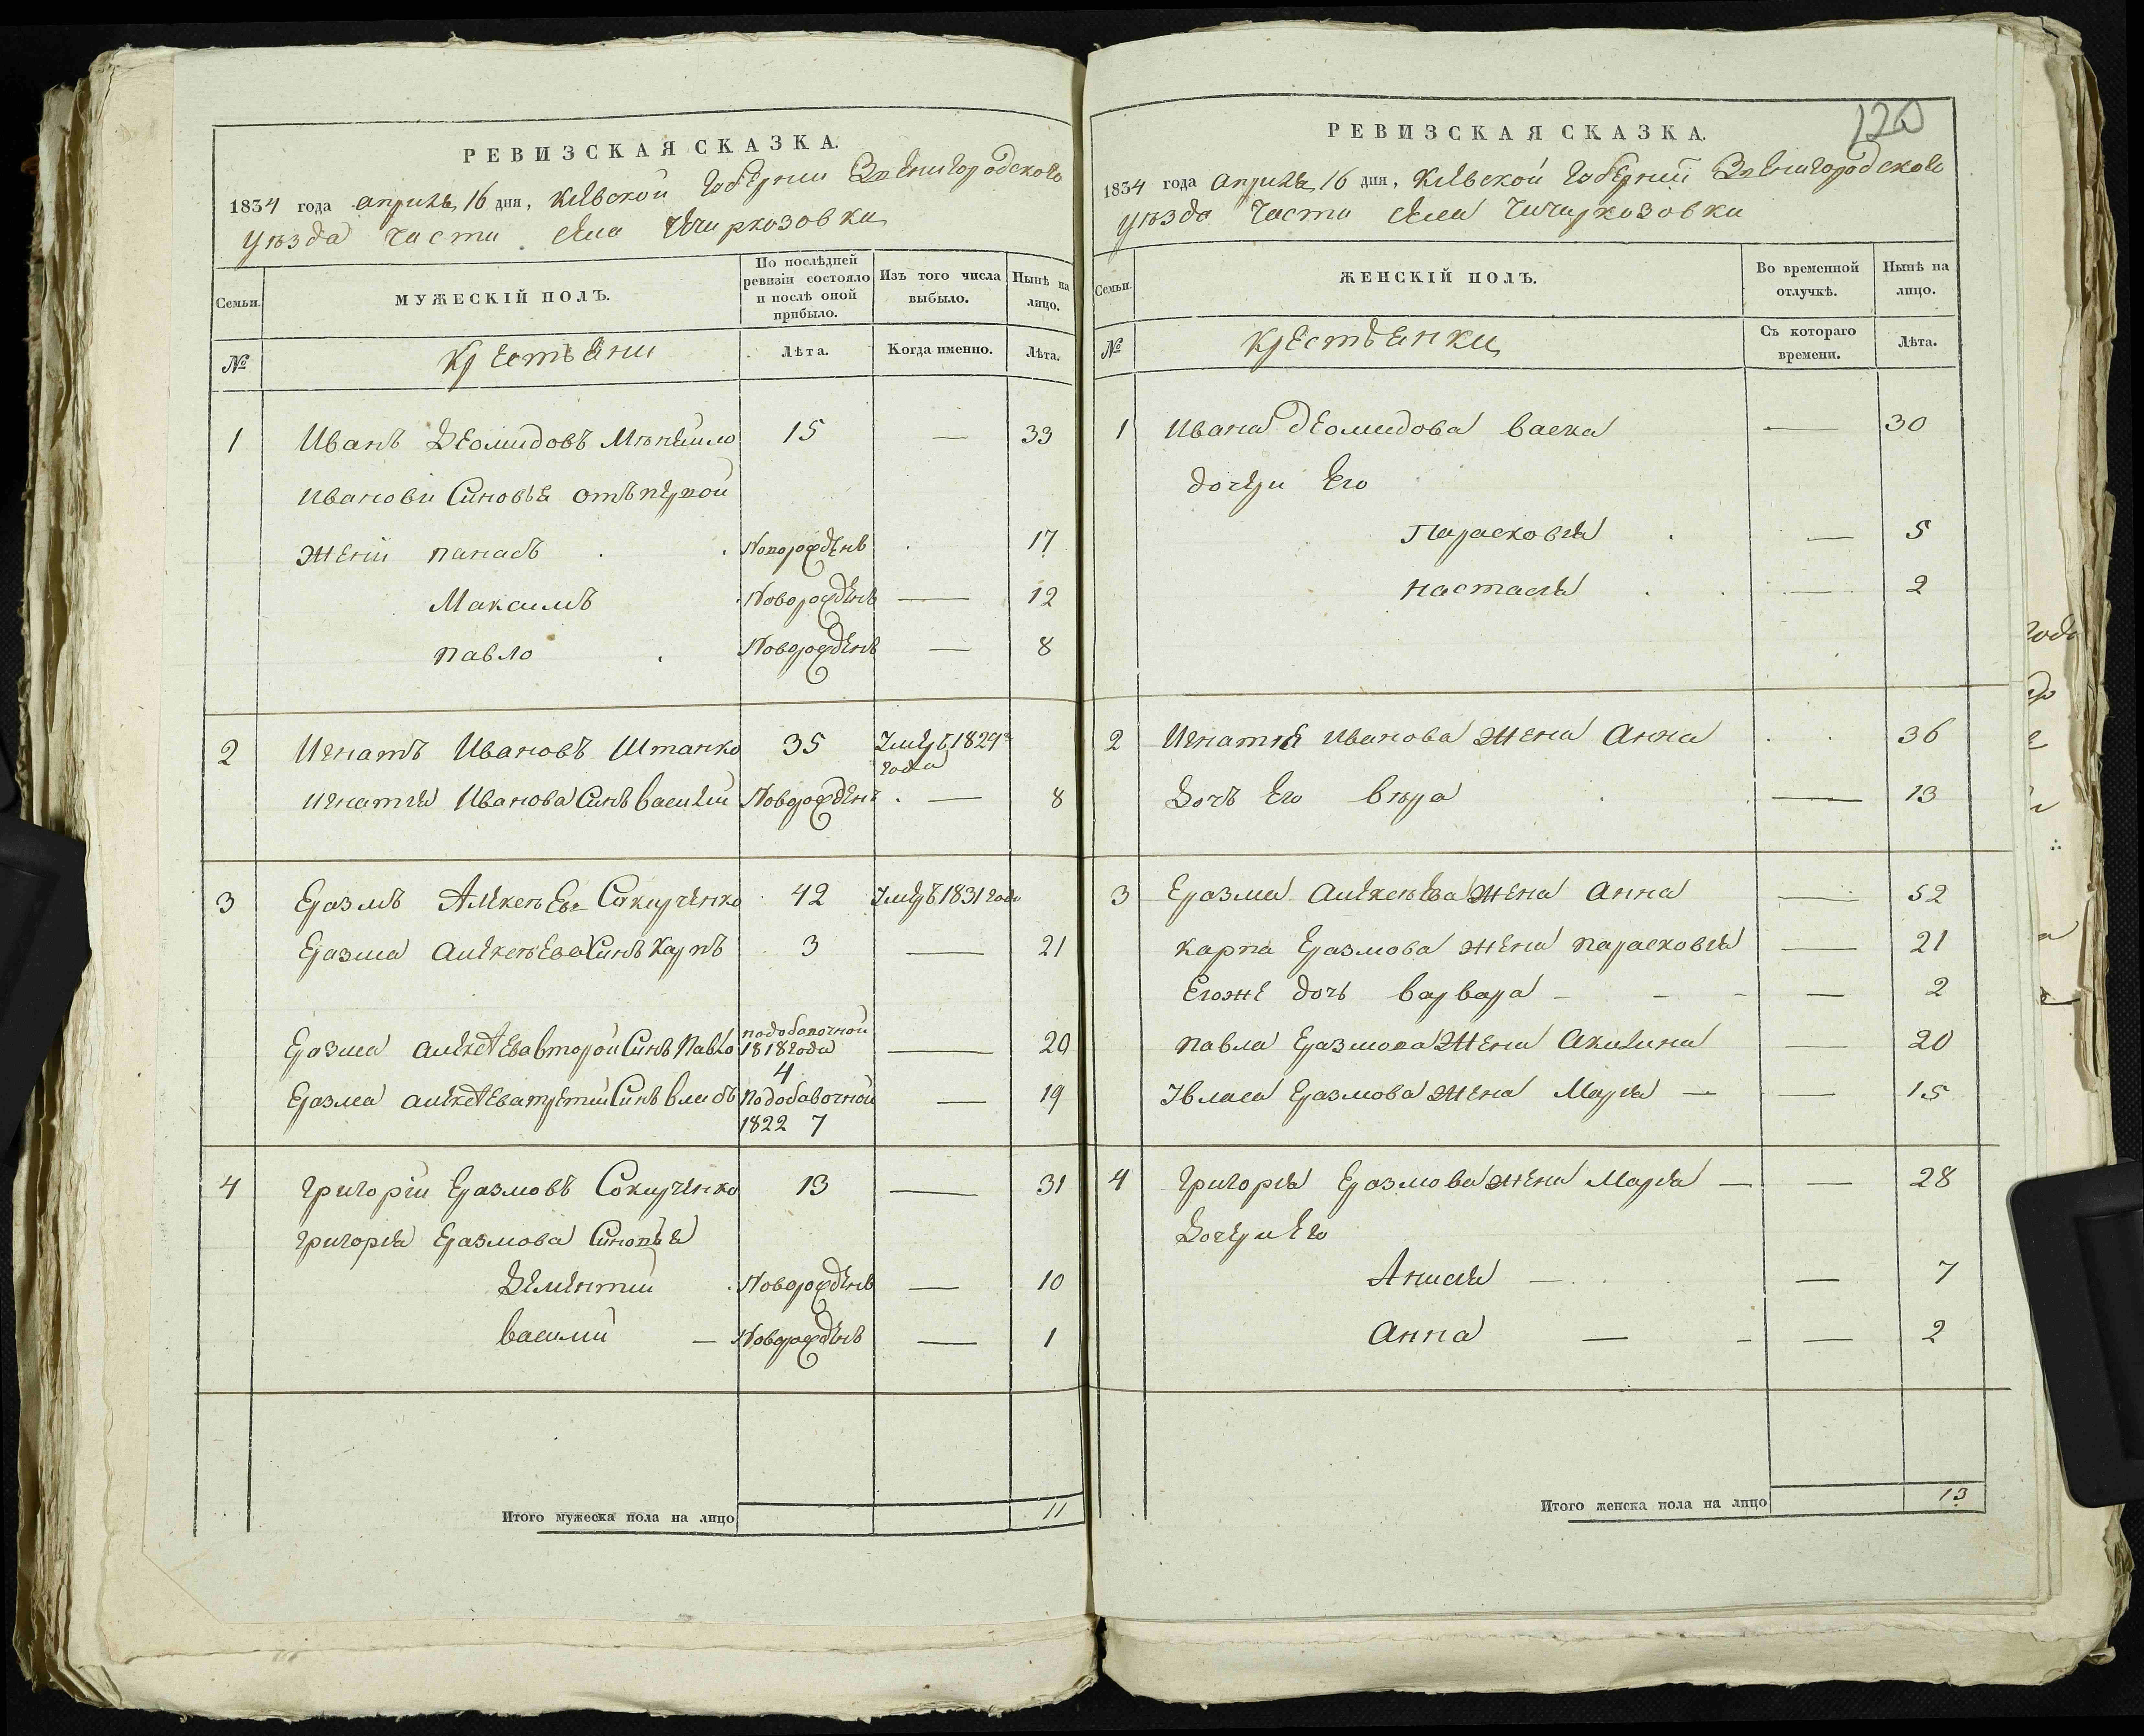 РЕВИЗСКАЯ СКАЗКА.
1834 года априля 16 дня, Киевской Губернии Звенигородского
уѣзда части села Чичиркозовки
Семьи. МУЖЕСКІЙ ПОЛЪ. По послѣдней ревизіи состояло и послѣ оной прибыло. Изъ того числа выбыло. Нынѣ на лицо.
№ Крестьяни Лѣта. Когда именно. Лѣта.
1 Иванъ Деомидовъ 15 — 33
Иванови Синовья отъ первой
жени панасъ новорожденъ 17
Максимъ Новорожденъ — 12
павло Новорожденъ — 8
2 Игнатъ Ивановъ Штанко 35 Умеръ 1829
года
игнатия Иванова Синъ василий Новорожденъ — 8
3 Еразмъ Алексѣевъ Сакирченко 42 Умеръ 1831 года
Еразма алексѣева Синъ Карпъ 3 — 21
Еразма алексѣева второй Синъ Павло подобавочной 1818 года 4 — 20
Еразма алексѣева третий Синъ власъ подобавочной 1822 7 — 19
4 григорій Еразмовъ Сокирченко 13 — 31
григория Еразмова Синовья
Дементий Новорожденъ — 10
василий — Новорожденъ — 1
Итого мужеска пола на лицо 11
120
РЕВИЗСКАЯ СКАЗКА.
1834 года априля 16 дня, Киевской Губерній Звенигородского
уѣзда части села Чичиркозовки
Семьи. ЖЕНСКІЙ ПОЛЪ. Во временной отлучкѣ. Нынѣ на лицо.
№ Крестьянки Съ котораго времени. Лѣта.
1 Ивана Деомидова васка — 30
дочери Его
Парасковия — 5
настасия — 2
2 Игнатия иванова жена анна 36
Дочъ Его вѣра — 13
3 Еразма алексѣева жена анна — 52
карпа Еразмова жена парасковия — 21
Егоже дочь варвара — — — — 2
павла Еразмова жена акилина — 20
Увласа Еразмова жена Мария — — 15
4 григория Еразмова жена Мария — — 28
Дочери Его
Анисия — — 7
анна — — — 2
Итого женска пола на лицо 13